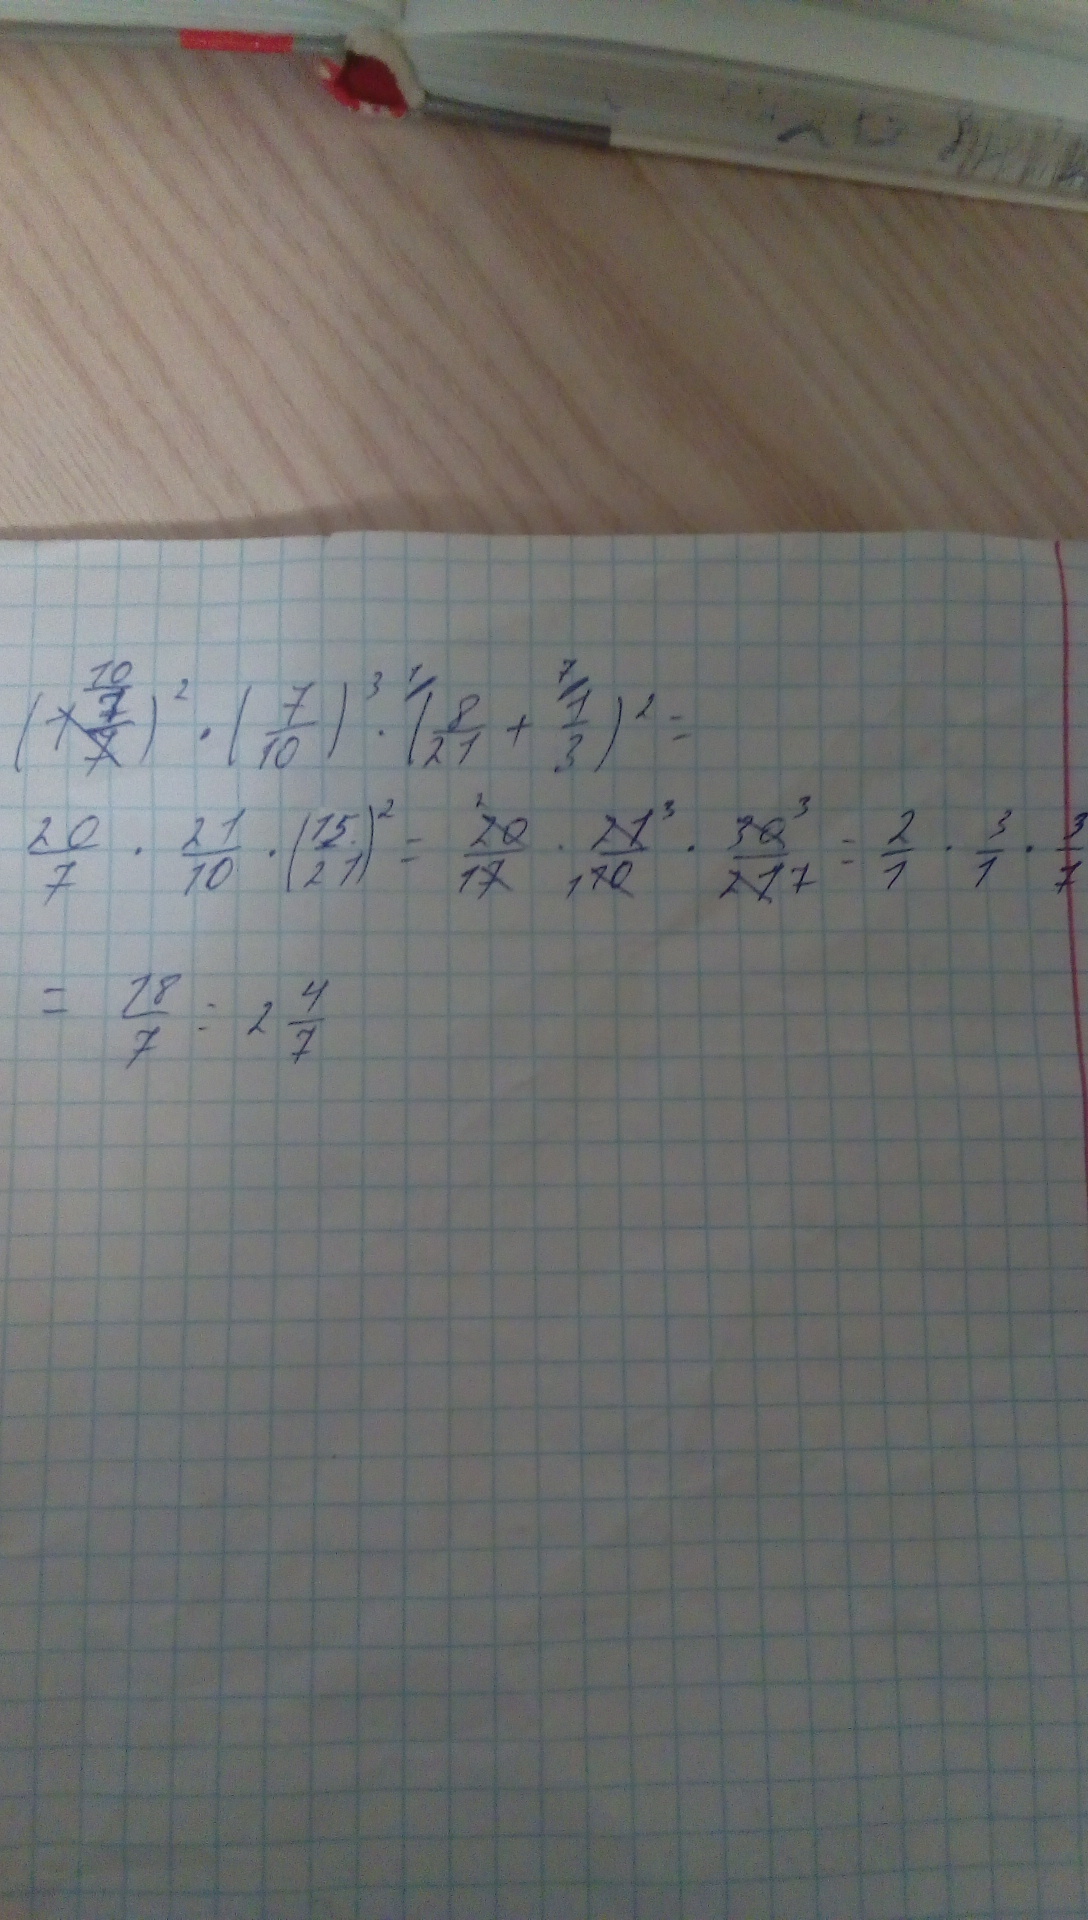 (10/7)² · (7/10)³ · (8/21 + 1/3)² =
20/7 · 21/10 · (15/21)² = 20/7 · 21/10 · 30/21 = 2/1 · 3/1 · 3/7
= 18/7 = 2 4/7